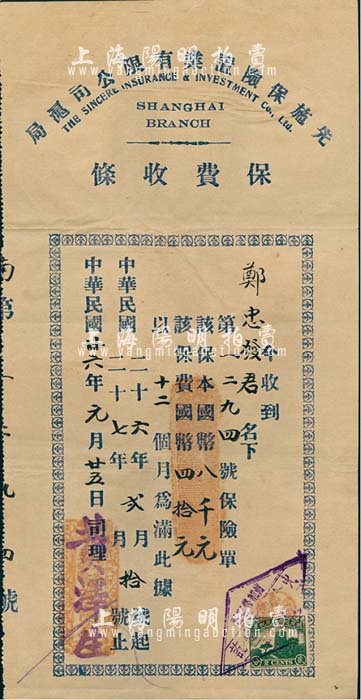 上海陽明拍賣
先施保險置業有限公司滬局
THE SINCERE INSURANCE & INVESTMENT Co., Ltd.
SHANGHAI
BRANCH
保費收條
今收到
鄭忠發君名下
第二九四號保險單
該保本國幣八千元
該保費國幣四拾元
以十二個月為滿此據
中華民國二十六年弍月拾號起
二十七年月號止
中華民國廿六年元月廿五日司理
2 CENTS
上海陽明拍賣
www.yangmingauction.com
上海陽明拍賣
www.yangmingauction.com